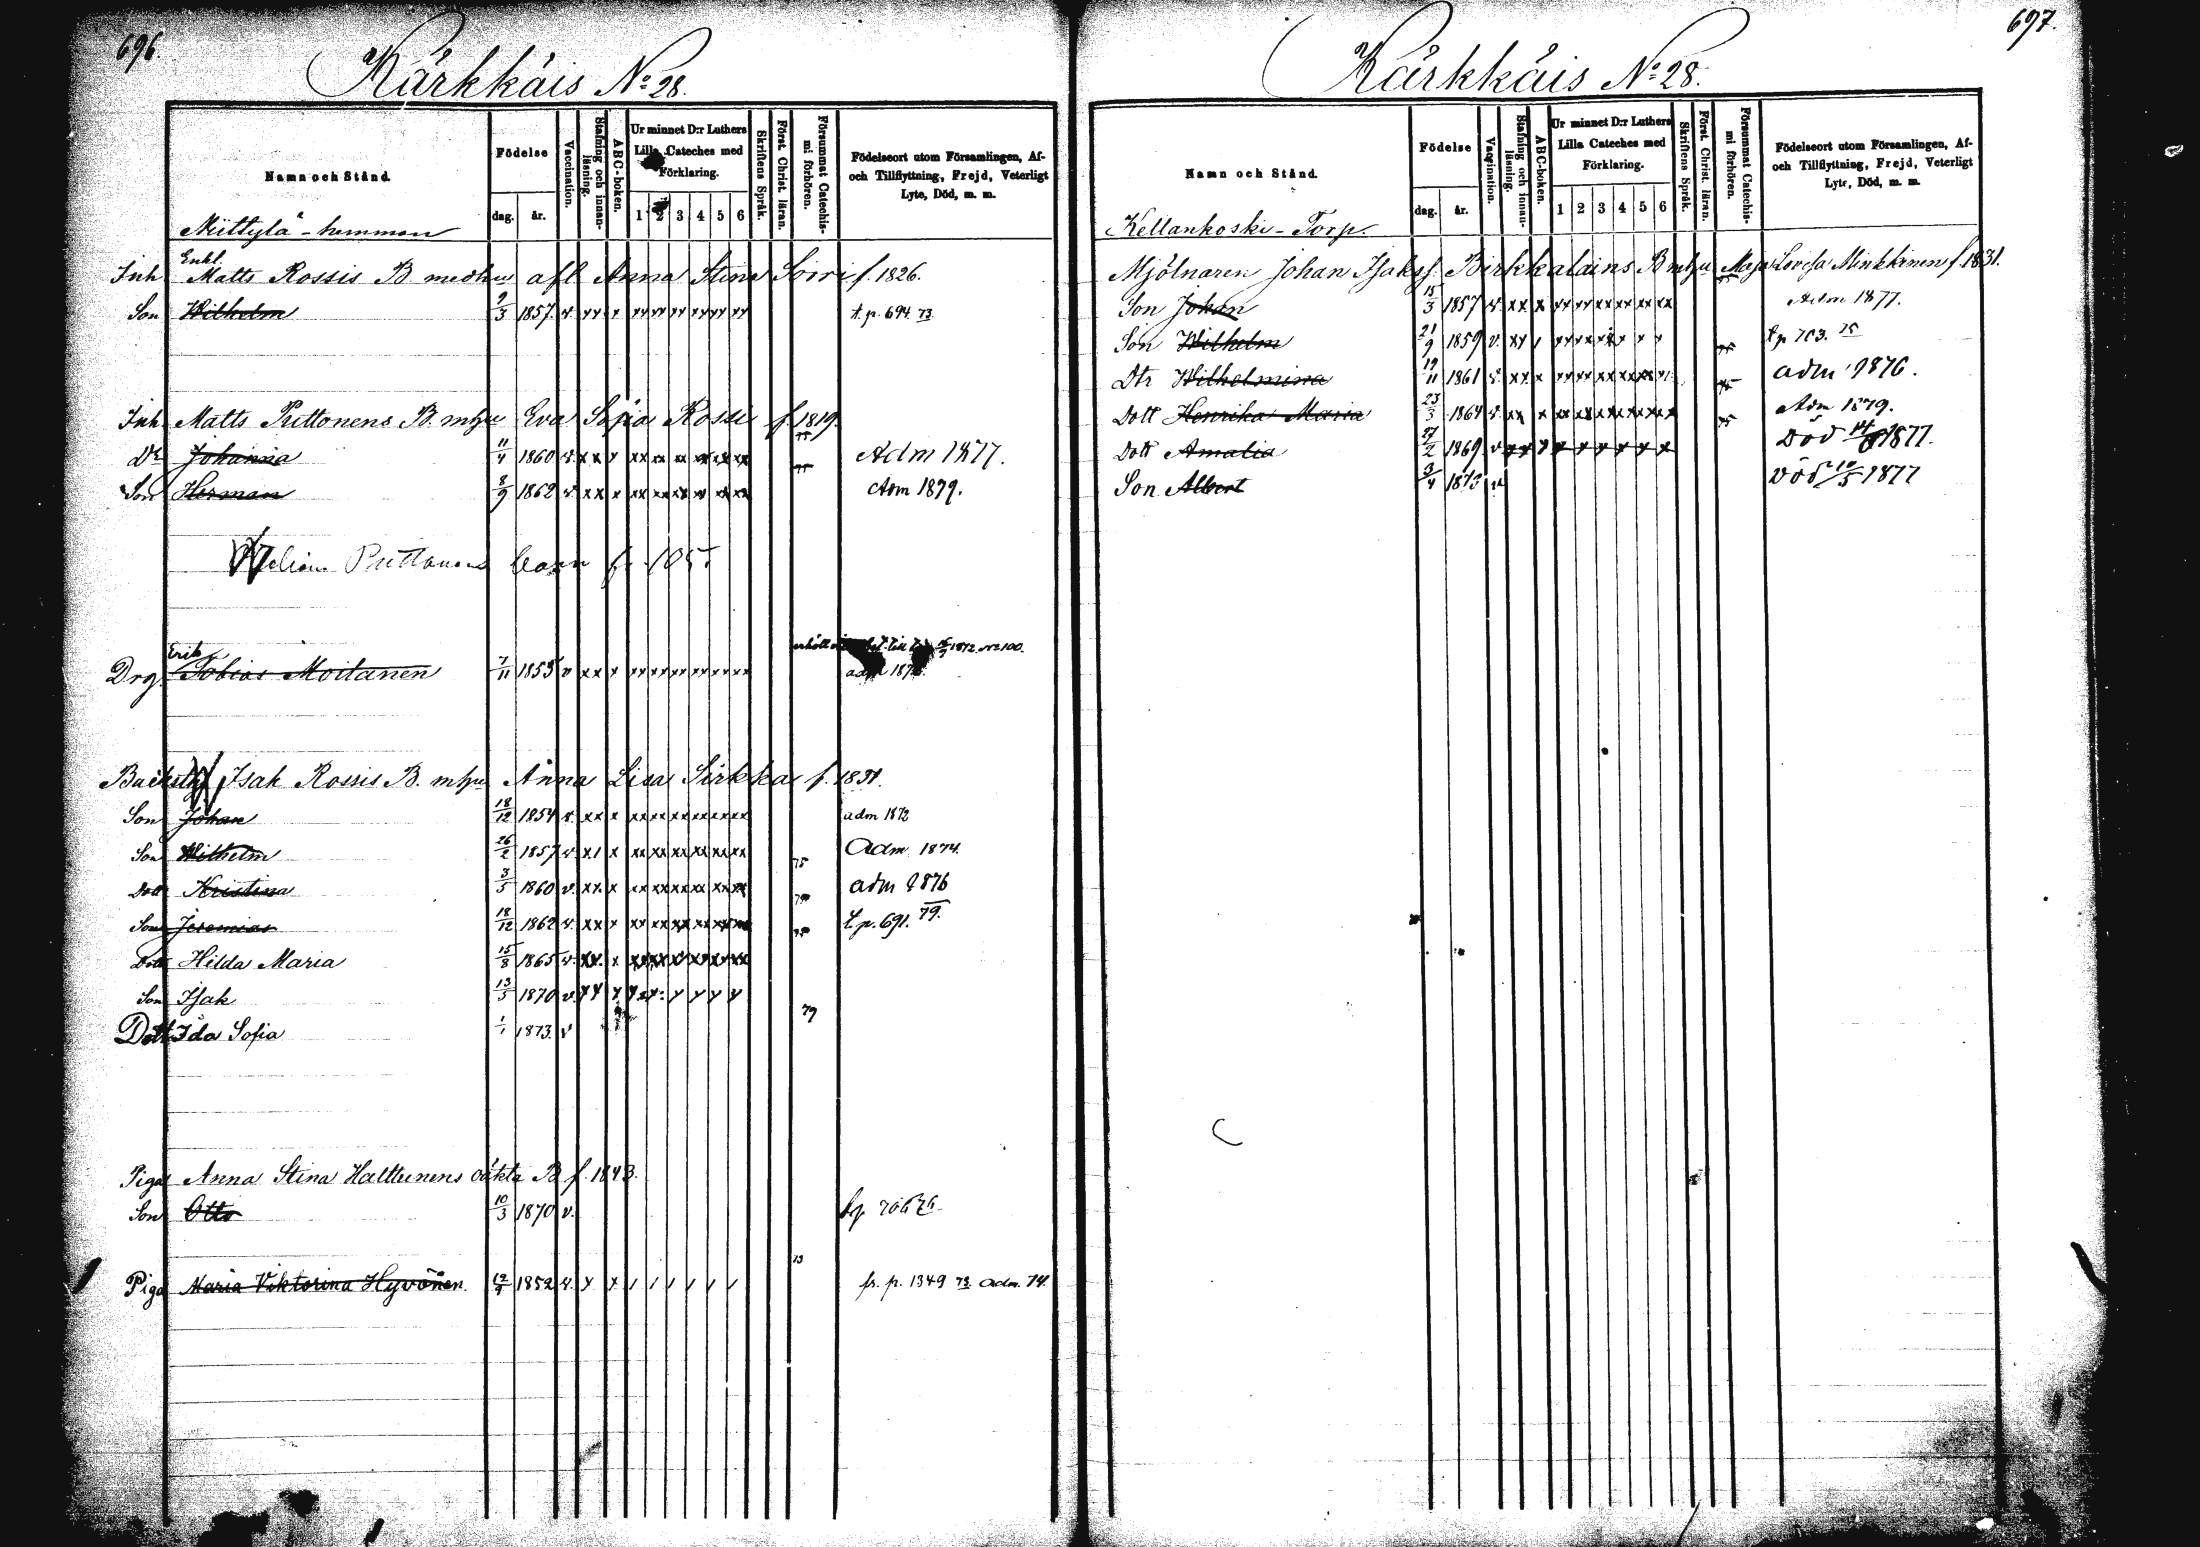 696.
Kärkkäis No 28.
Namn och Stånd.
Födelse
dag. år.
Vaccination.
Stafning och innan-läsning.
ABC-boken.
Ur minnet D:r Luthers Lilla Cateches med Förklaring.
1 2 3 4 5 6
Skriftens Språk.
Först. Christ. läran.
Försummat Catechis-mi förhören.
Födelseort utom Församlingen, Af- och Tillflyttning, Frejd, Veterligt Lyte, Död, m. m.
Miettylä-hemman
Enkl.
Inh. Matts Rossis B med hu afl Anna Stina Sorri f. 1826.
Son Wilhelm 9/3 1857. v. xx x xx xx xx xx xx t. p. 694 73
Inh. Matts Puttonens B. m hu Eva Sofia Rossi f. 1819.
Dr Johanna 11/4 1860 v. xx x xx xx xx xx xx xx 75 Adm 1877.
Son Herman 8/9 1862 v. xx x xx xx xx xx xx xx 75 Adm 1879.
Puttonens barn
erhöll 1872. No 100.
Erik
Drg. Tobias Moilanen 7/11 1853 v xx x xx xx xx xx xx xx adm
Isak Rossis B. m hu Anna Lisa Sirkka f. 1831.
Son Johan 18/12 1854 v. xx x xx xx xx xx xx xx adm 1872
Son Wilhelm 26/2 1857 v. x1 x xx xx xx xx xx xx 75 Adm 1874.
Dott Kristina 3/5 1860 v. xx x xx xx xx xx xx xx adm 1876
Son Jeremias 18/12 1862 v. xx x xx xx xx xx xx xx 75 t. p. 691. 79.
Dott Hilda Maria 15/8 1865 v. xx. x xx xx xx xx xx xx
Son Isak 13/5 1870 v. xx x x x x x x x
79
Dott Ida Sofia 1/1 1873. v
Piga Anna Stina Halttunens oäkta B f. 1843.
Son Otto 10/3 1870 v. tp 706 76
73
Piga Maria Viktorina Hyvönen. 1852 v. x x 1 1 1 1 1 1 fr. p. 1349 73 adm. 74.
697.
Kärkkäis No 28.
Namn och Stånd.
Födelse
dag. år.
Vaccination.
Stafning och innan-läsning.
ABC-boken.
Ur minnet D:r Luthers Lilla Cateches med Förklaring.
1 2 3 4 5 6
Skriftens Språk.
Först. Christ. läran.
Försummat Catechis-mi förhören.
Födelseort utom Församlingen, Af- och Tillflyttning, Frejd, Veterligt Lyte, Död, m. m.
Kellankoski-Torp.
Mjölnaren Johan Isakss. Birkkalains B m hu Maja Lovisa Minkkinen f. 1831.
Son Johan 15/3 1857 v. xx x xx xx xx xx xx xx Adm 1877.
Son Wilhelm 21/9 1859 v. xx 1 xx xx xx x x 75 tp 703. 75
Dtr Wilhelmina 19/11 1861 v. xx x xx xx xx xx xx 75 adm 1876.
Dott Henrika Maria 23/3 1864 v. xx x xx xx xx xx xx xx 75 Adm 1879.
Dott Amalia 27/2 1869 v xx x x x x x x x Död 1877.
Son Albert 3/4 1873 v Död 10/5 1877